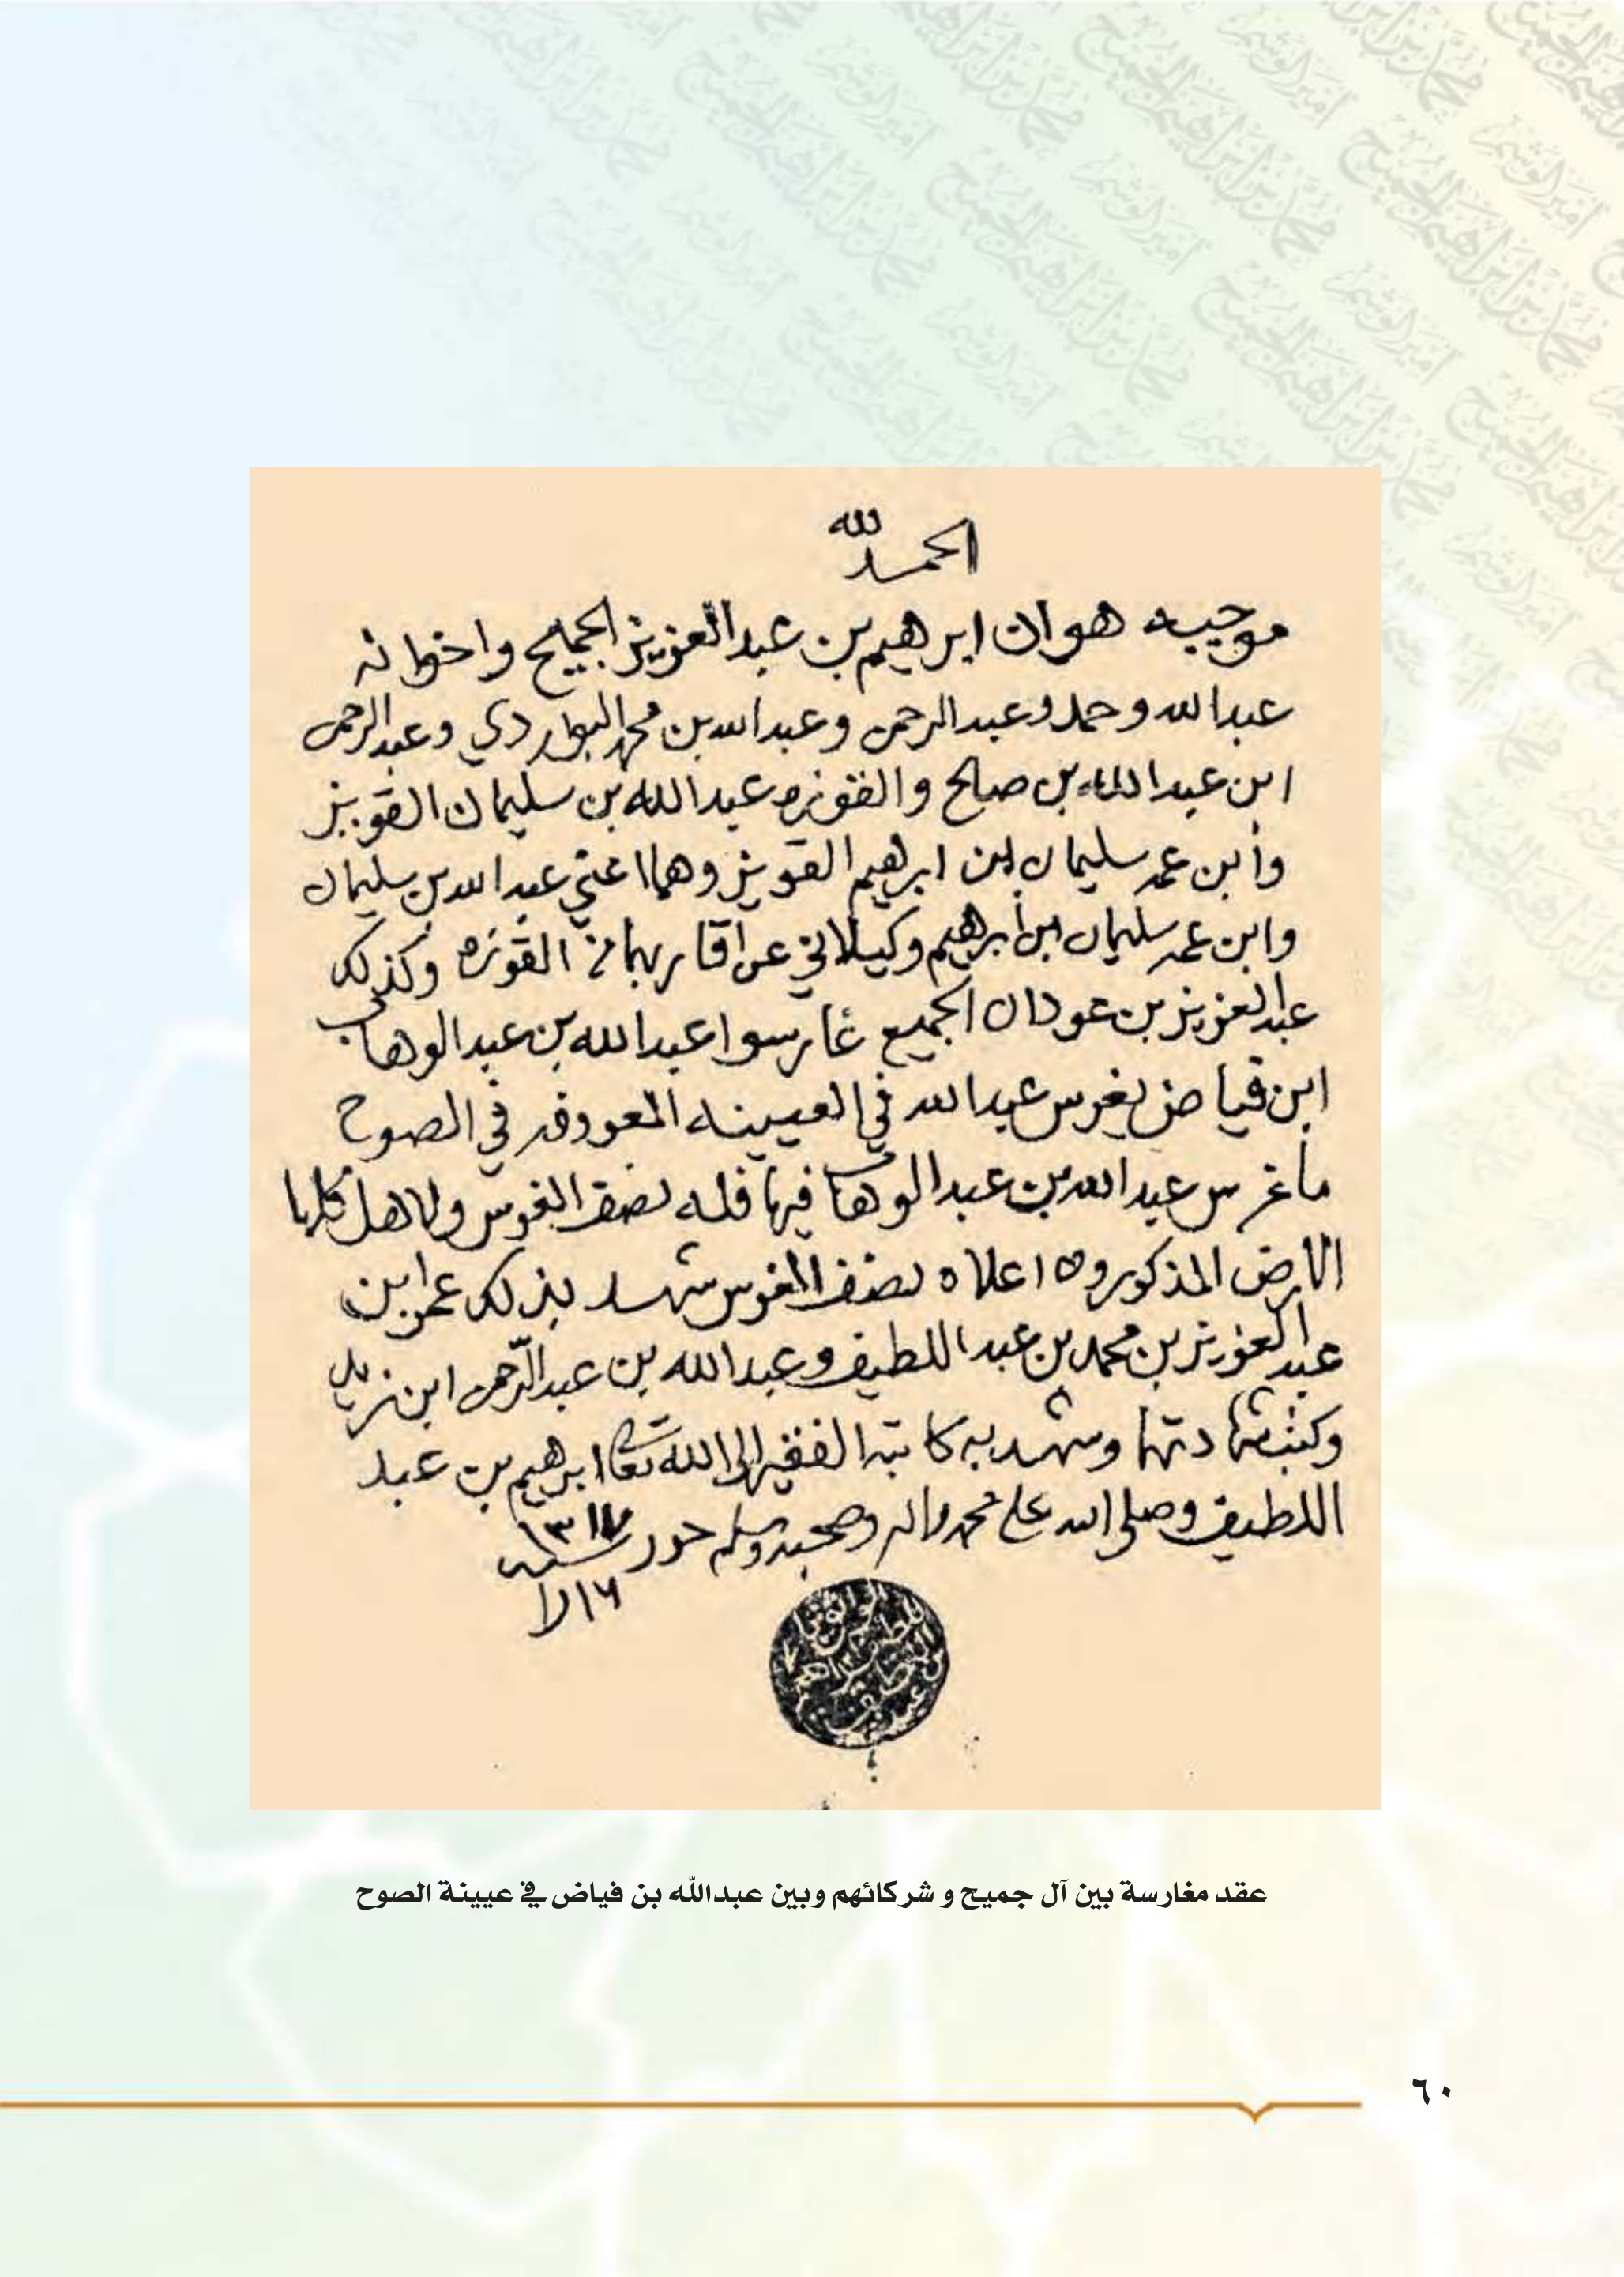 الحمد لله
موجبه هو ان ابرهيم بن عبدالعزيز الجميح واخوانه
عبدالله وحمد وعبدالرحمن وعبدالله بن محمد البواردي وعبدالرحمن
ابن عبدالله بن صالح والقوزه عبدالله بن سليمان القويز
وابن عمه سليمان ابن ابرهيم القويز وهما اعني عبدالله بن سليمان
وابن عمه سليمان ابن ابرهيم وكيلاني عن اقاربهما القوزه وكذلك
عبدالعزيز بن عودان الجميع غارسوا عبدالله بن عبدالوهاب
ابن فياض يغرس عبدالله في العيينه المعروفه في الصوح
ما غرس عبدالله بن عبدالوهاب فيها فله نصف الغرس ولاهل
الارض المذكوروه اعلاه نصف الغرس شهد بذلك عمر ابن
عبدالعزيز بن محمد بن عبداللطيف وعبدالله بن عبدالرحمن ابن زيد
وكتب شهادتهما وشهد به كاتبه الفقير الى الله تعالى ابرهيم بن عبد
اللطيف وصلى الله على محمد واله وصحبه وسلم حرر سنة ١٣١٧
عقد مغارسة بين آل جميح و شركائهم وبين عبدالله بن فياض في عيينة الصوح
٦٠